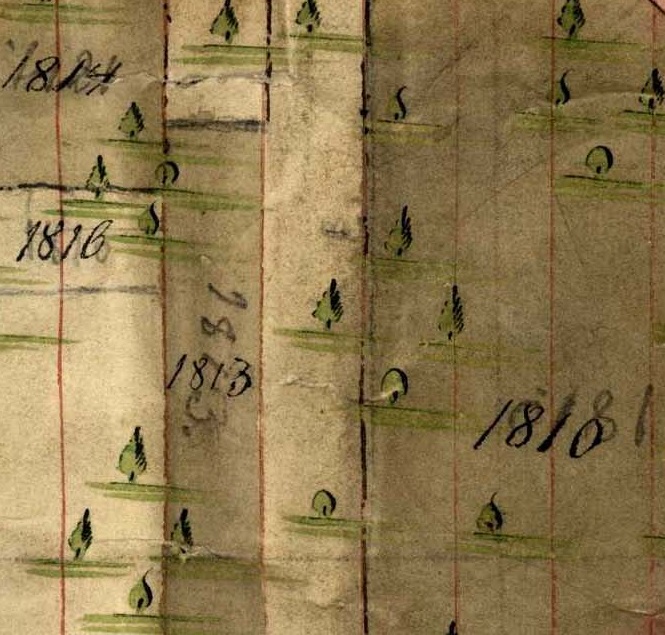 1814
1816
1813
1813.
1810